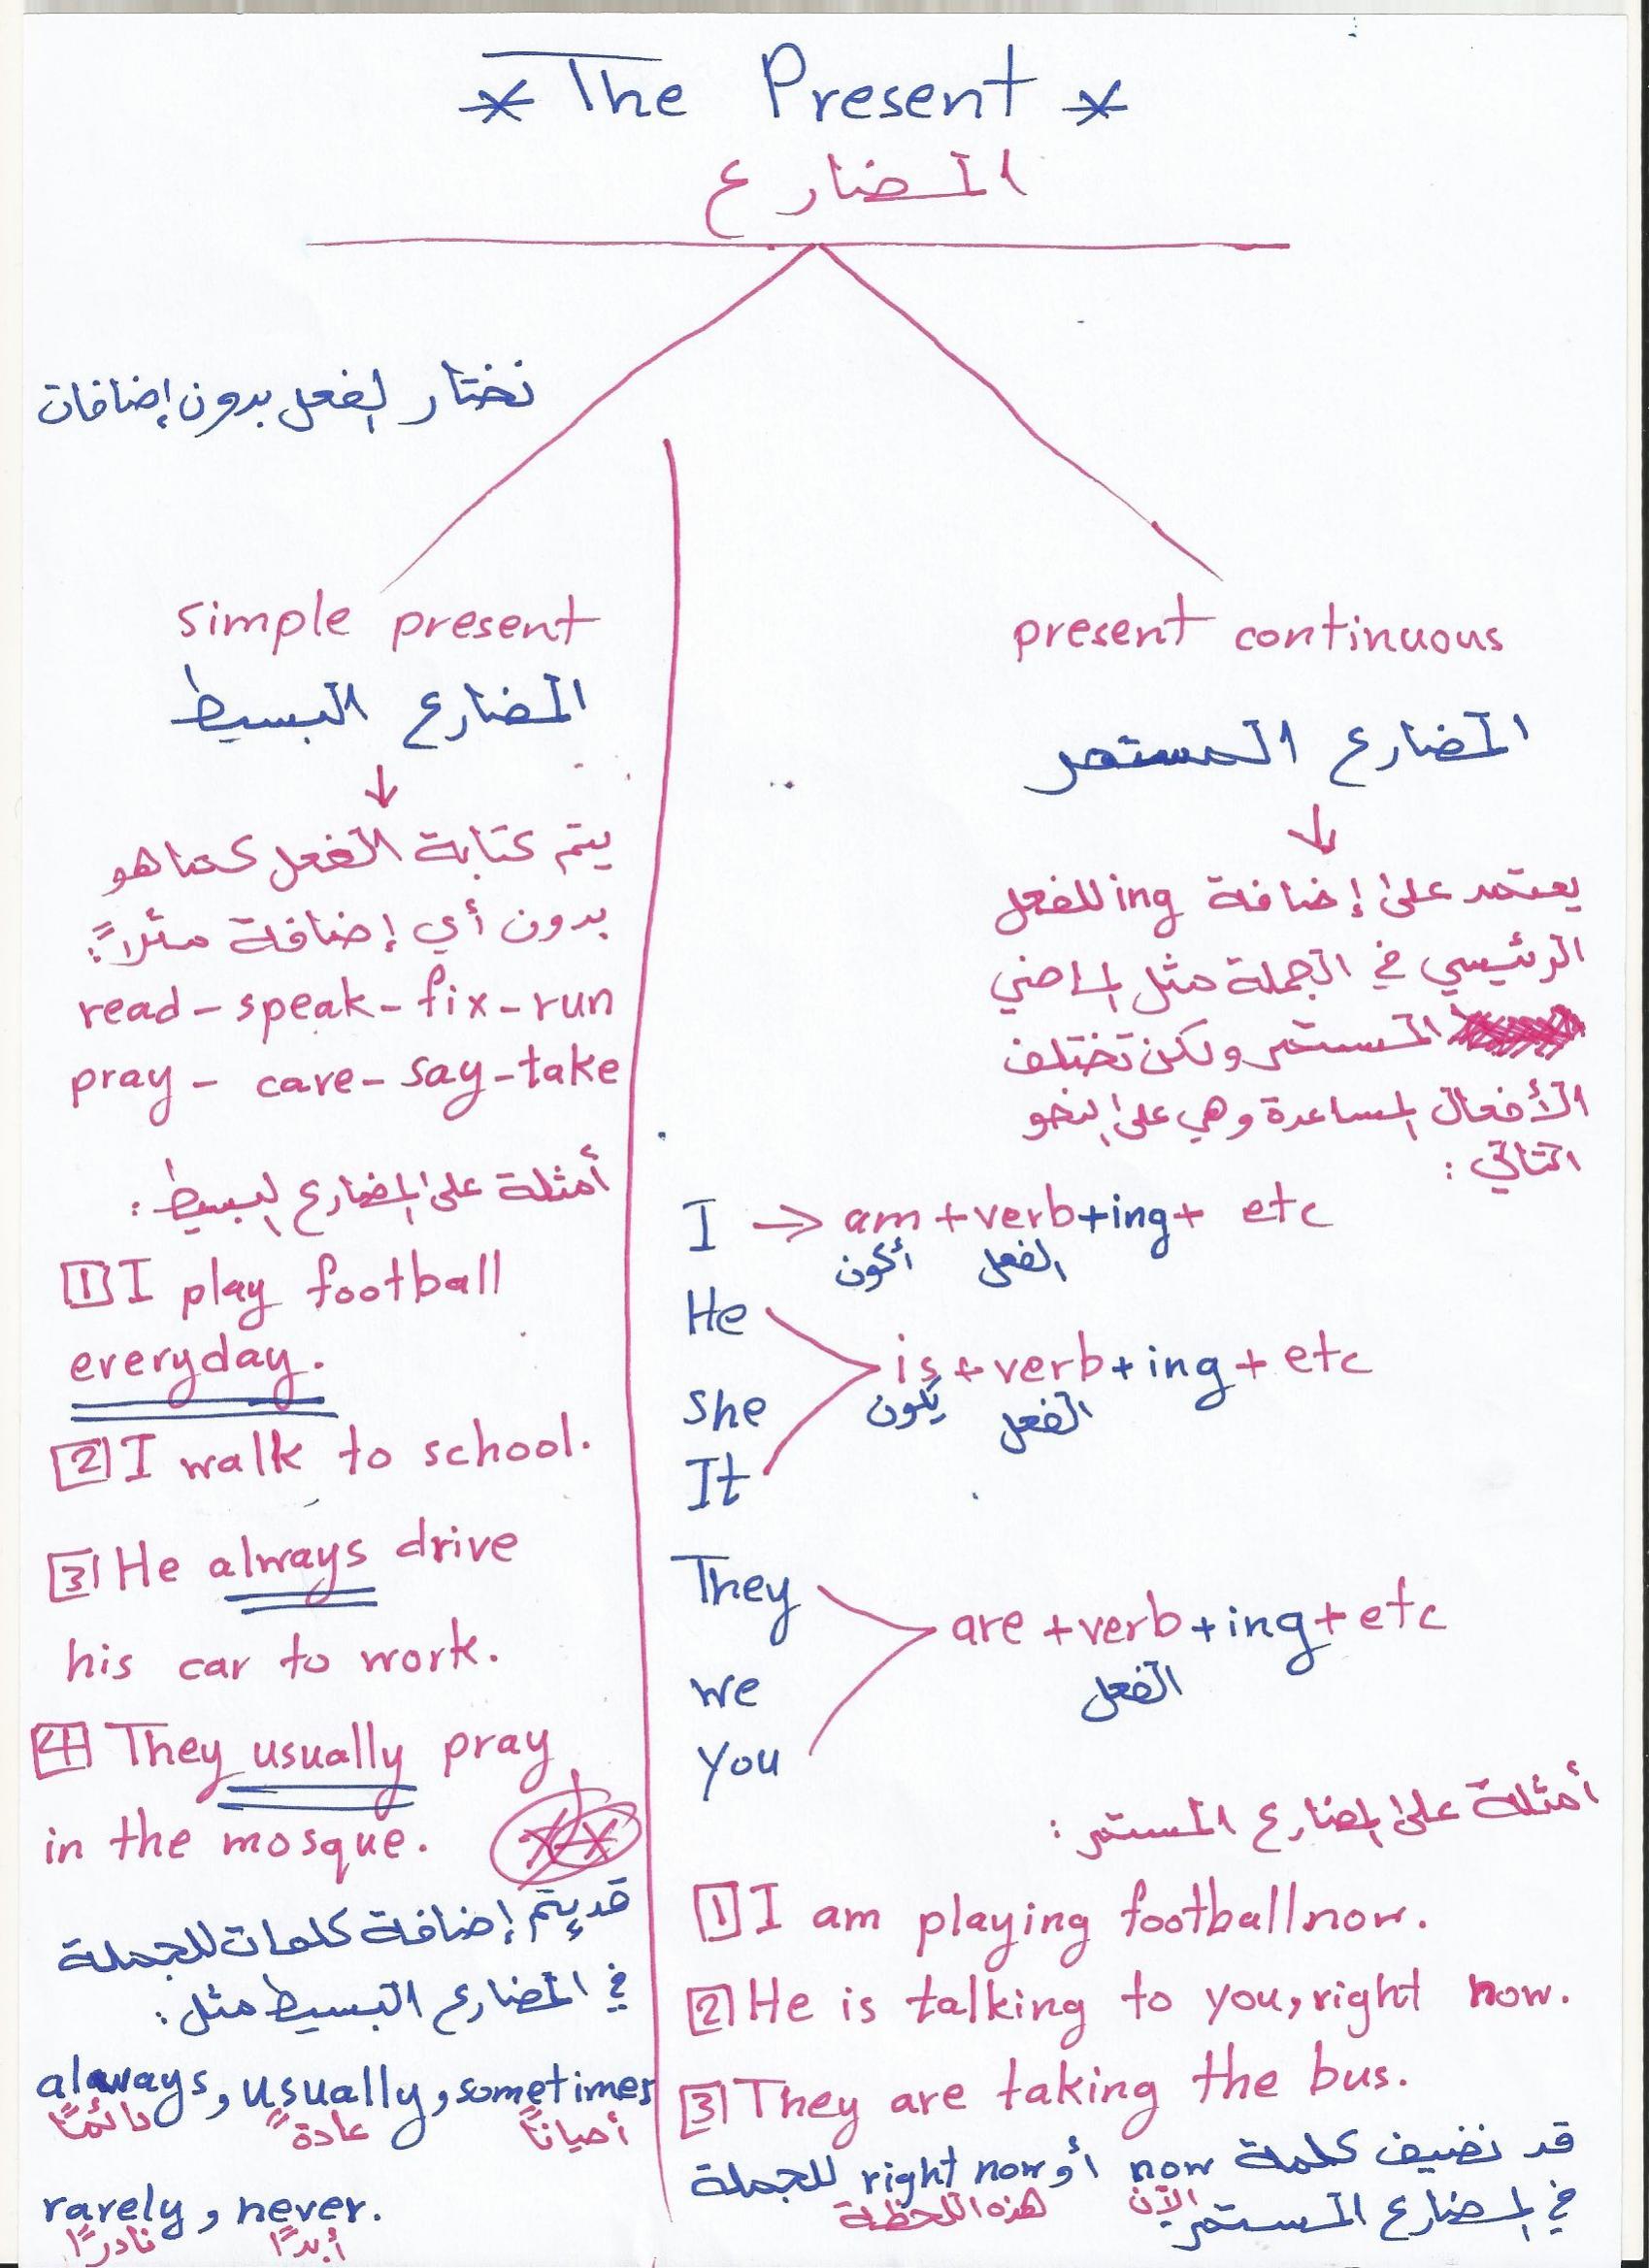 * The Present *
المضارع
نختار الفعل بدون إضافات
simple present
المضارع البسيط
↓
يتم كتابة الفعل كما هو
بدون أي إضافة مثلاً:
read - speak - fix - run
pray - care - say - take
أمثلة على المضارع البسيط :
1 I play football
everyday.
2 I walk to school.
3 He always drive
his car to work.
4 They usually pray
in the mosque.
قد يتم إضافة كلمات للجملة
في المضارع البسيط مثل :
always, usually, sometimes
دائمًا عادةً أحيانًا
rarely, never.
نادرًا أبدًا
present continuous
المضارع المستمر
↓
يعتمد على إضافة ing للفعل
الرئيسي في الجملة مثل الماضي
المستمر ولكن تختلف
الأفعال المساعدة وهي على النحو
التالي :
I → am + verb + ing + etc
أكون الفعل
He
is + verb + ing + etc
She
يكون الفعل
It
They
are + verb + ing + etc
we
الفعل
you
أمثلة على المضارع المستمر :
1 I am playing football now.
2 He is talking to you, right now.
3 They are taking the bus.
قد نضيف كلمة now أو right now للجملة
الآن هذه اللحظة
في المضارع المستمر.